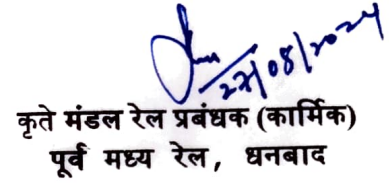 22/08/2024
कृते मंडल रेल प्रबंधक (कार्मिक)
पूर्व मध्य रेल, धनबाद